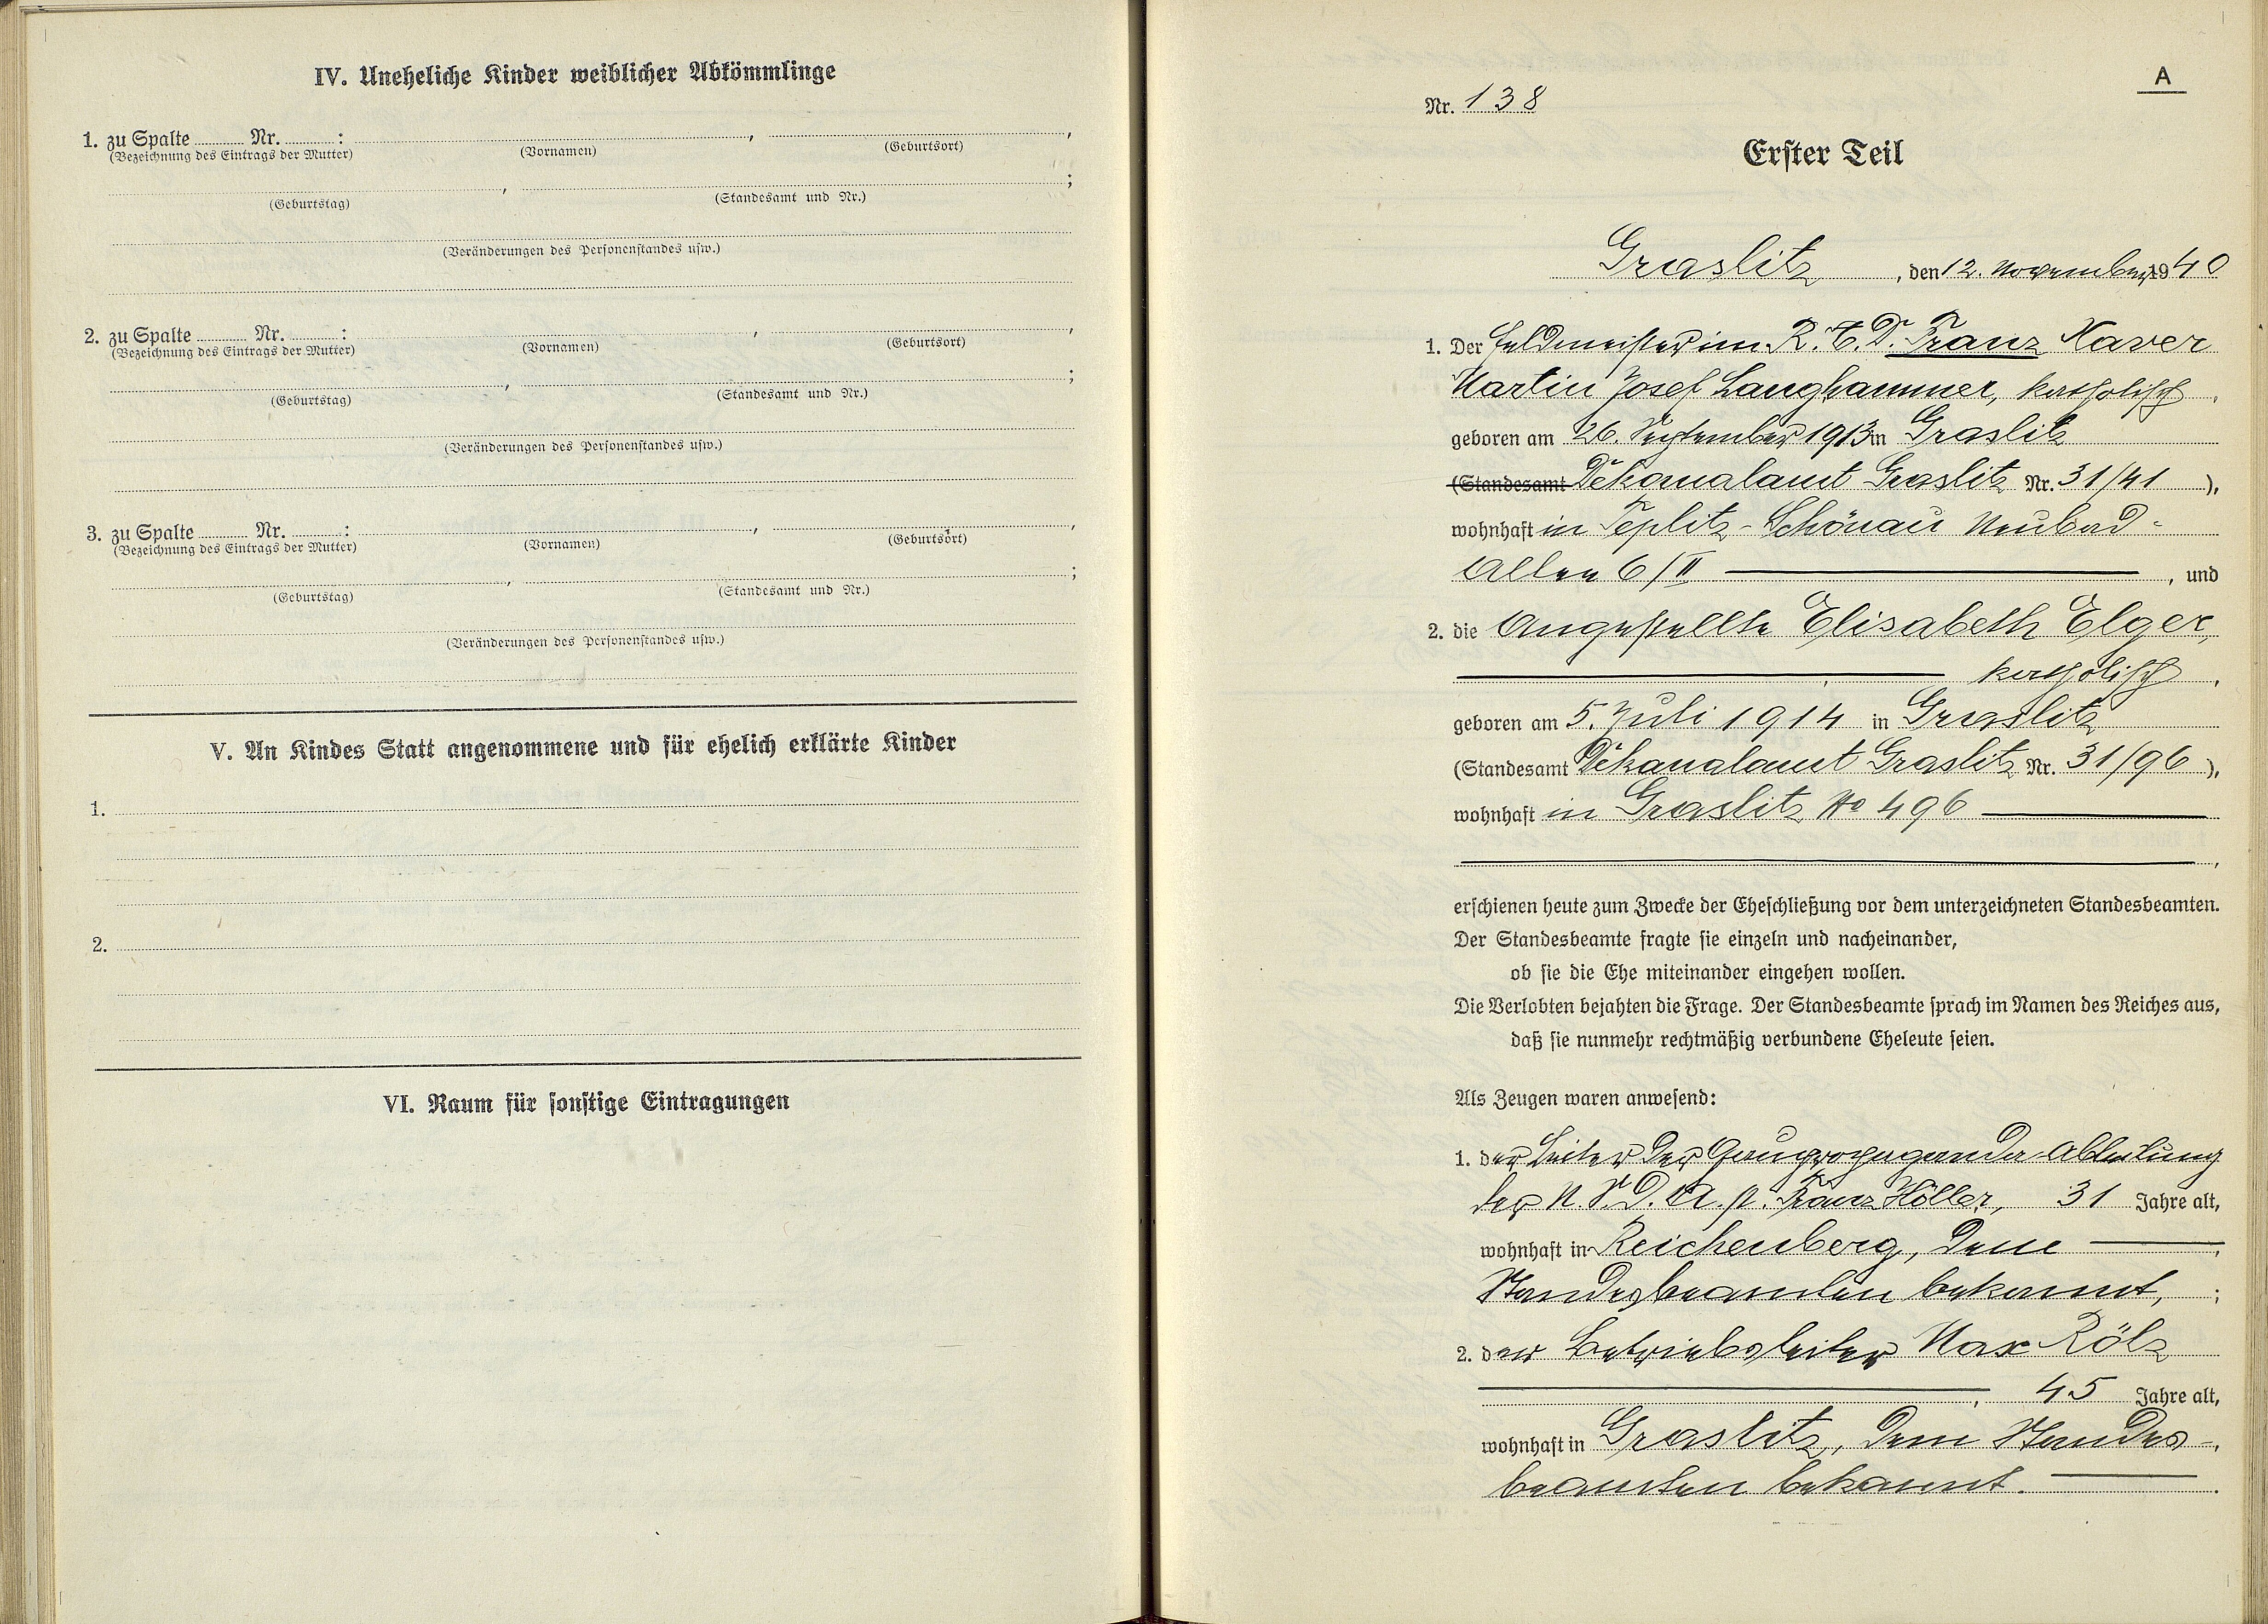 IV. Uneheliche Kinder weiblicher Abkömmlinge
1. zu Spalte Nr. : , ,
(Bezeichnung des Eintrags der Mutter) (Vornamen) (Geburtsort)
, ;
(Geburtstag) (Standesamt und Nr.)
(Veränderungen des Personenstandes usw.)
2. zu Spalte Nr. : , ,
(Bezeichnung des Eintrags der Mutter) (Vornamen) (Geburtsort)
, ;
(Geburtstag) (Standesamt und Nr.)
(Veränderungen des Personenstandes usw.)
3. zu Spalte Nr. : , ,
(Bezeichnung des Eintrags der Mutter) (Vornamen) (Geburtsort)
, ;
(Geburtstag) (Standesamt und Nr.)
(Veränderungen des Personenstandes usw.)
V. An Kindes Statt angenommene und für ehelich erklärte Kinder
1.
2.
VI. Raum für sonstige Eintragungen
A
Nr. 138
Erster Teil
Graslitz, den 12. November 1940
1. Der Feldmeister im R.A.D. Franz Xaver
Martin Josef Langhammer, katholisch,
geboren am 26. September 1913 in Graslitz
(Standesamt Dekanalamt Graslitz Nr. 31/41),
wohnhaft in Teplitz-Schönau Neubad-
Allee 6/II, und
2. die Angestellte Elisabeth Elger,
katholisch,
geboren am 5. Juli 1914 in Graslitz
(Standesamt Dekanalamt Graslitz Nr. 31/96),
wohnhaft in Graslitz No 496
,
erschienen heute zum Zwecke der Eheschließung vor dem unterzeichneten Standesbeamten.
Der Standesbeamte fragte sie einzeln und nacheinander,
ob sie die Ehe miteinander eingehen wollen.
Die Verlobten bejahten die Frage. Der Standesbeamte sprach im Namen des Reiches aus,
daß sie nunmehr rechtmäßig verbundene Eheleute seien.
Als Zeugen waren anwesend:
1. der Leiter der Gaupropaganda-Abteilung
der N.S.D.A.P. Franz Höller, 31 Jahre alt,
wohnhaft in Reichenberg, dem
Standesbeamten bekannt, ;
2. der Betriebsleiter Max Rölz
, 45 Jahre alt,
wohnhaft in Graslitz, dem Standes-
beamten bekannt.